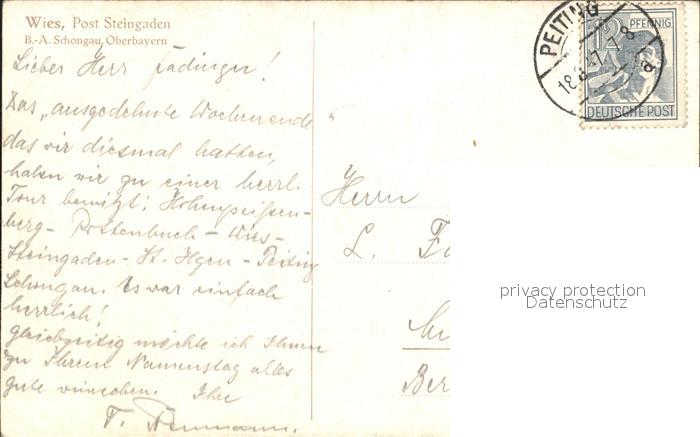 Wies, Post Steingaden
B.-A. Schongau, Oberbayern
Lieber Herr Fädinger!
Das „ausgedehnte Wochenende"
das wir diesmal hatten,
haben wir zu einer herrl.
Tour benützt: Hohenpeißen-
berg - Rottenbuch - Wies -
Steingaden - St. Ilgen - Peiting
Schongau. Es war einfach
herrlich!
Gleichzeitig möchte ich Ihnen
zu Ihrem Namenstag alles
gute wünschen. Ihre
PEITING
18.8.47.7-8
a
12 PFENNIG
DEUTSCHE POST
Herrn
L. Fä
Ber
privacy protection
Datenschutz